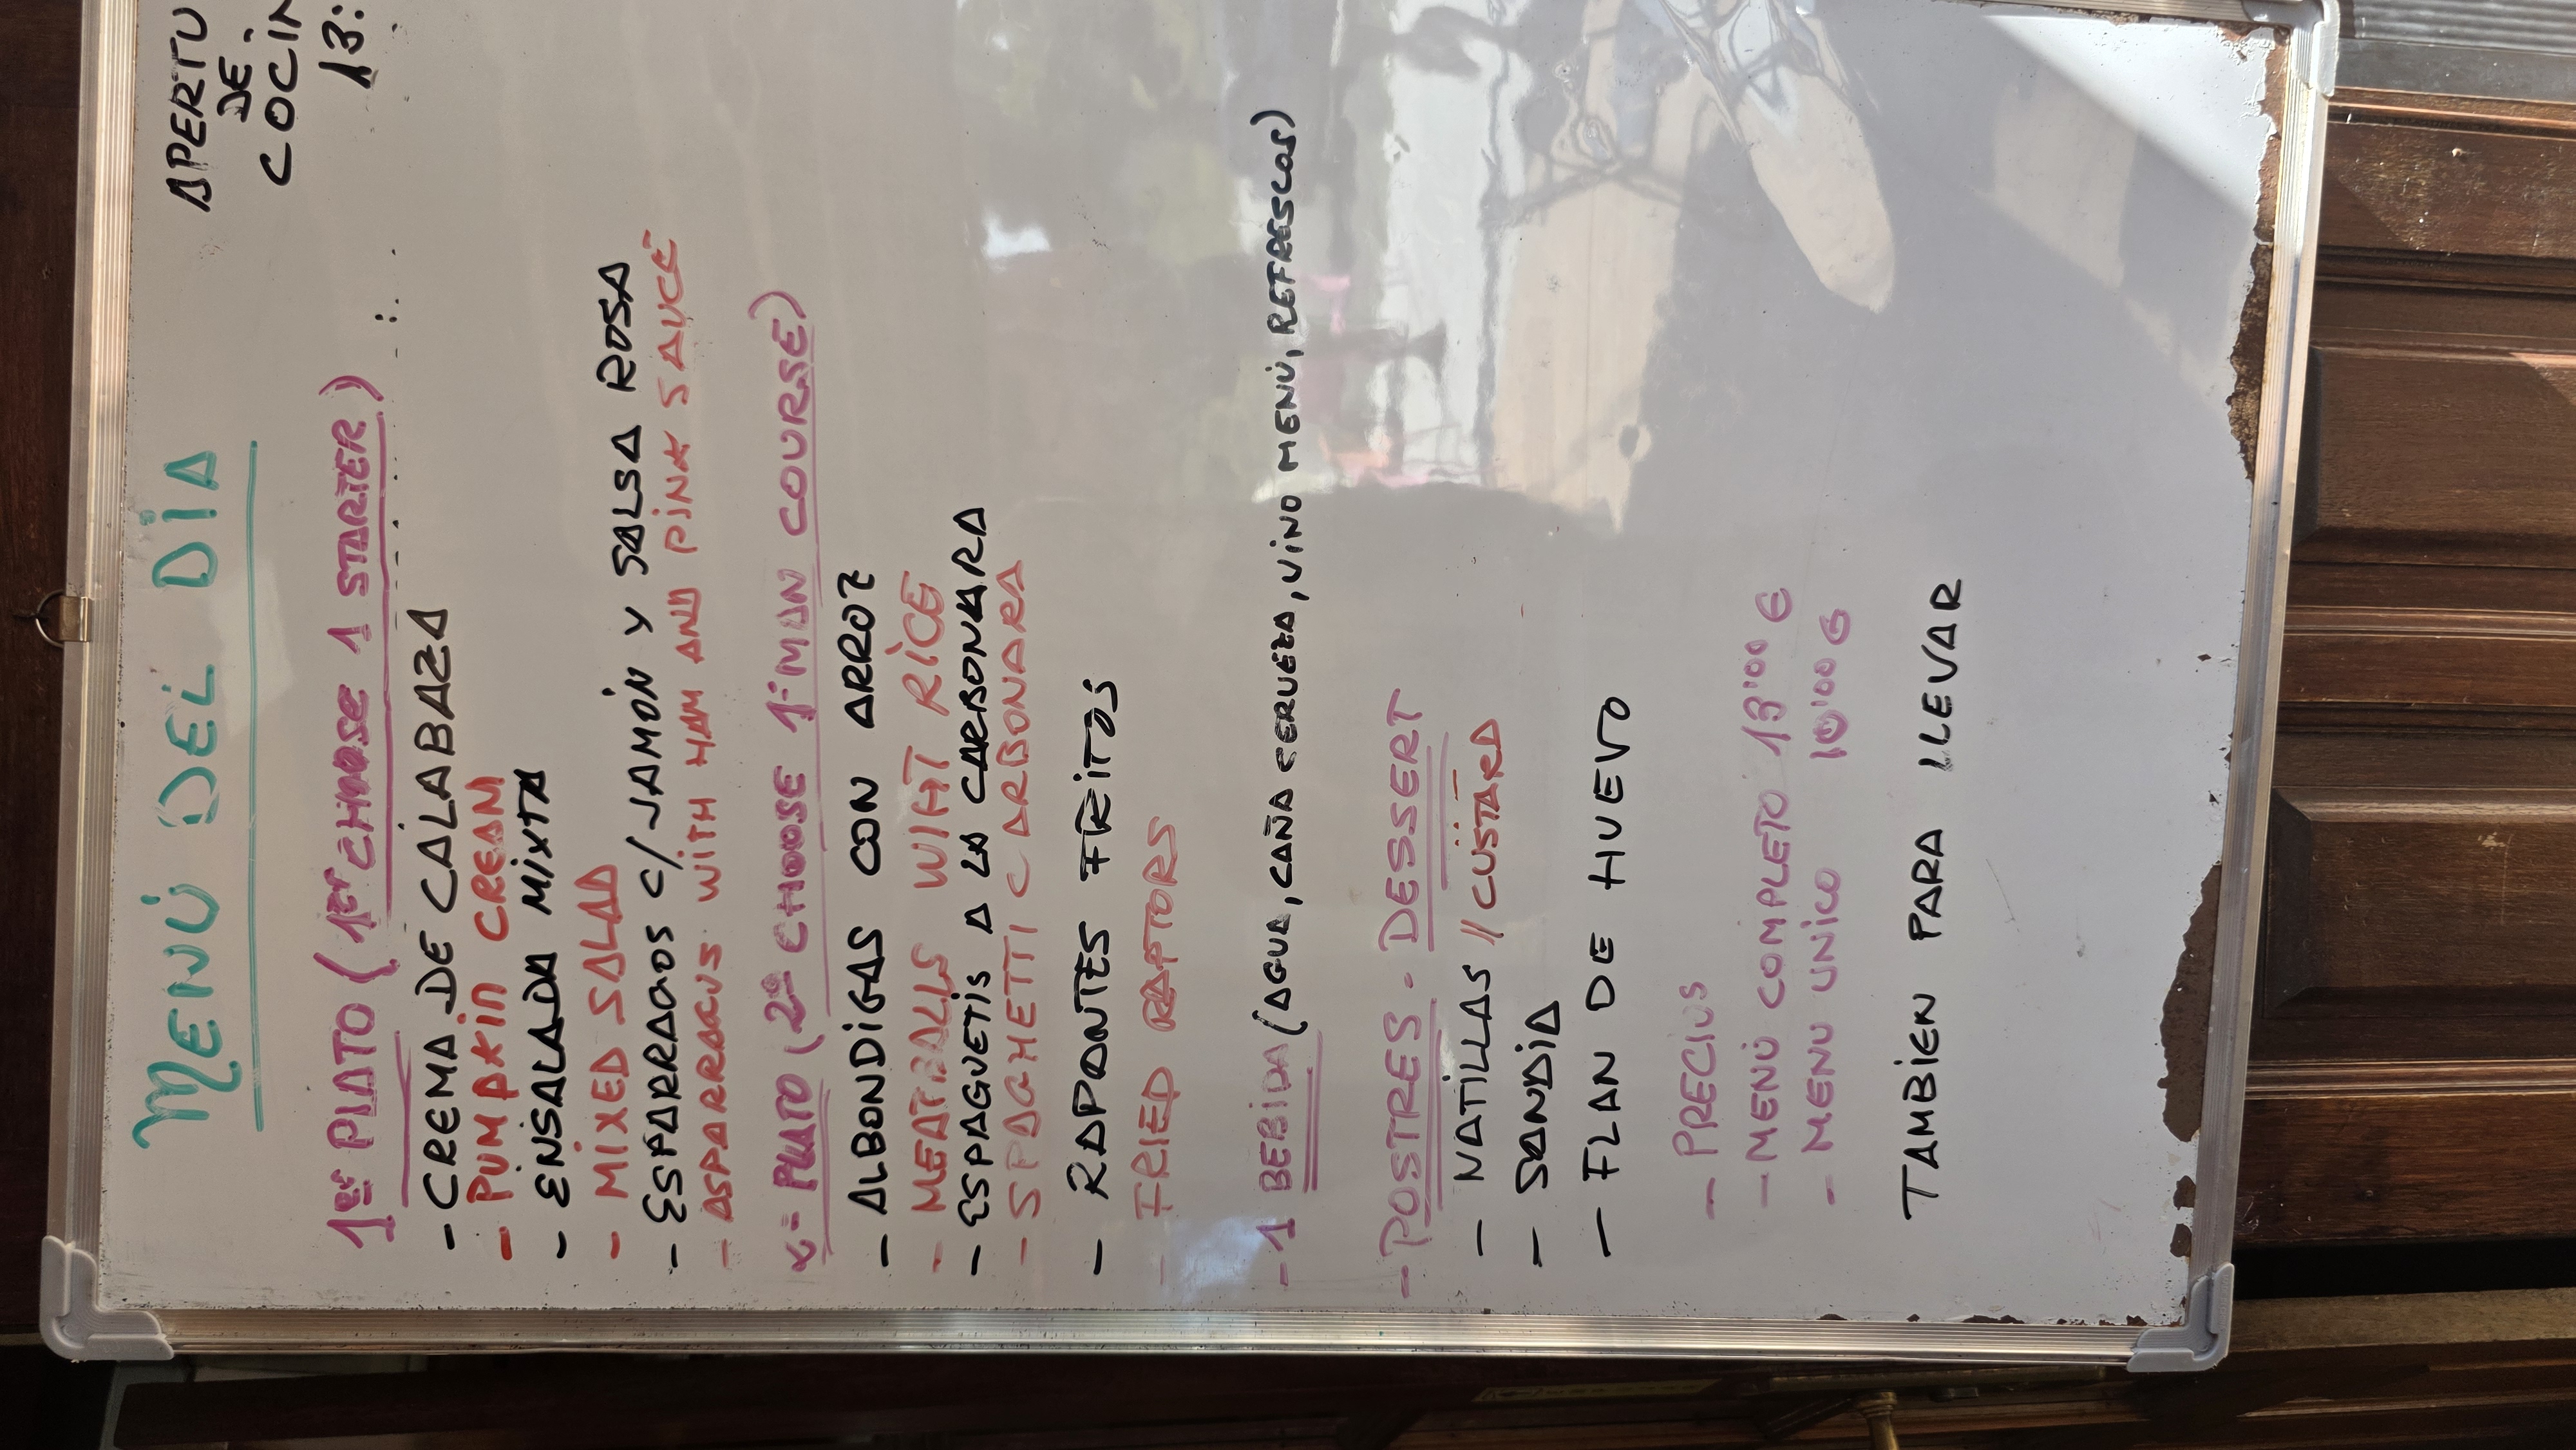 MENÚ DEL DÍA
APERTU
DE
COCIN
13:
1er PLATO (1er CHOOSE 1 STARTER)
- CREMA DE CALABAZA
- PUMPKIN CREAM
- ENSALADA MIXTA
- MIXED SALAD
- ESPARRAGOS C/ JAMÓN Y SALSA ROSA
- ASPARRAGUS WITH HAM AND PINK SAUCE
PLATO (2º CHOOSE 1 MAN COURSE)
- ALBONDIGAS CON ARROZ
- MEATBALLS WIHT RICE
- ESPAGUETIS A LA CARBONARA
- SPAGHETTI CARBONARA
- RAPANTES FRITOS
- FRIED RAPTORS
- 1 BEBIDA (AGUA, CAÑA CERVEZA, VINO MENÚ, REFRESCOS)
- POSTRES - DESSERT
- NATILLAS // CUSTARD
- SANDIA
- FLAN DE HUEVO
- PRECIOS
- MENÚ COMPLETO 13'00 €
- MENU UNICO 10'00 €
TAMBIEN PARA LLEVAR